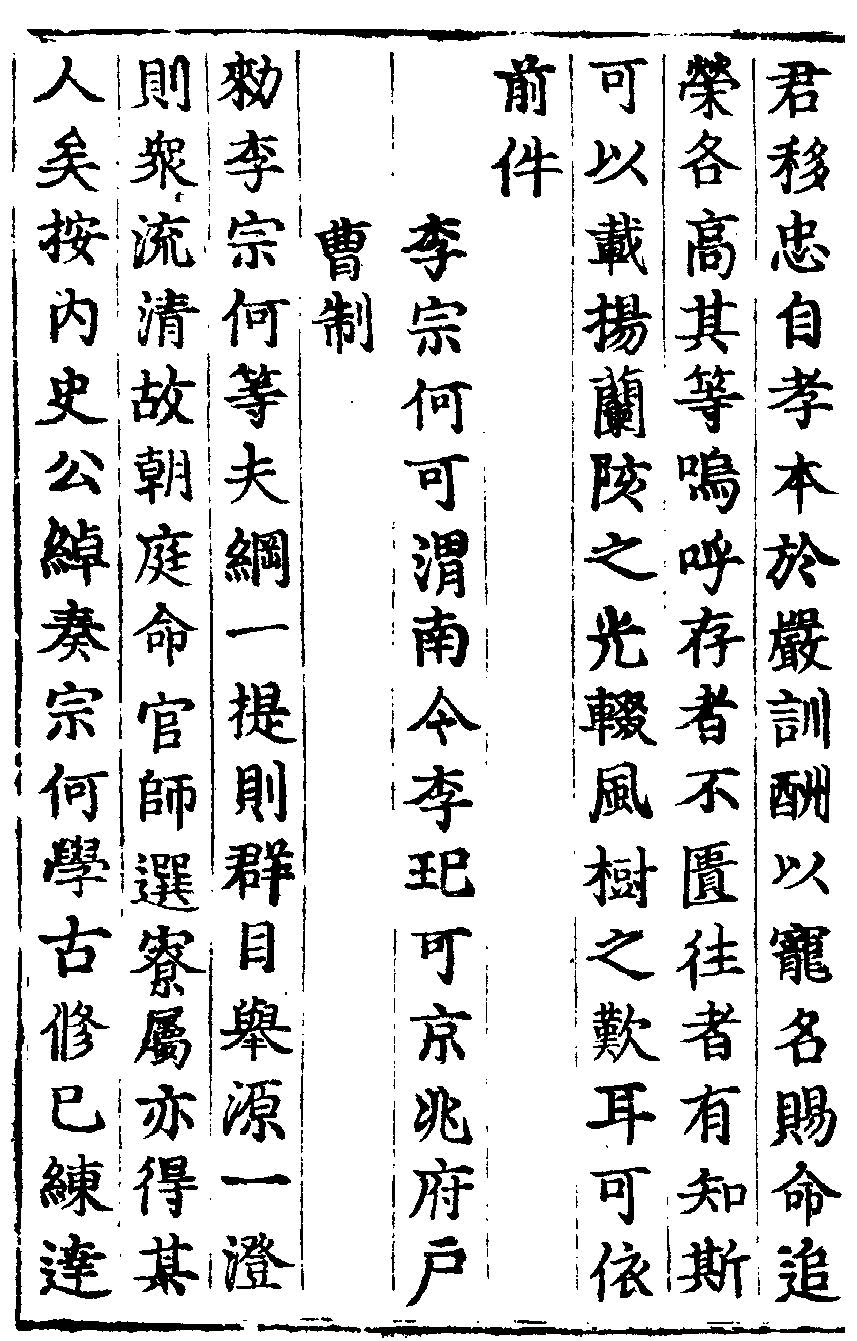 君移忠自孝本於嚴訓酬以寵名賜命追
榮各高其等嗚呼存者不匱往者有知斯
可以載揚蘭陔之光輟風樹之歎耳可依
前件
李宗何可渭南令李玘可京兆府戶
曹制
敕李宗何等夫綱一提則群目舉源一澄
則衆流清故朝庭命官師選寮屬亦得其
人矣按內史公綽奏宗何學古修已練達